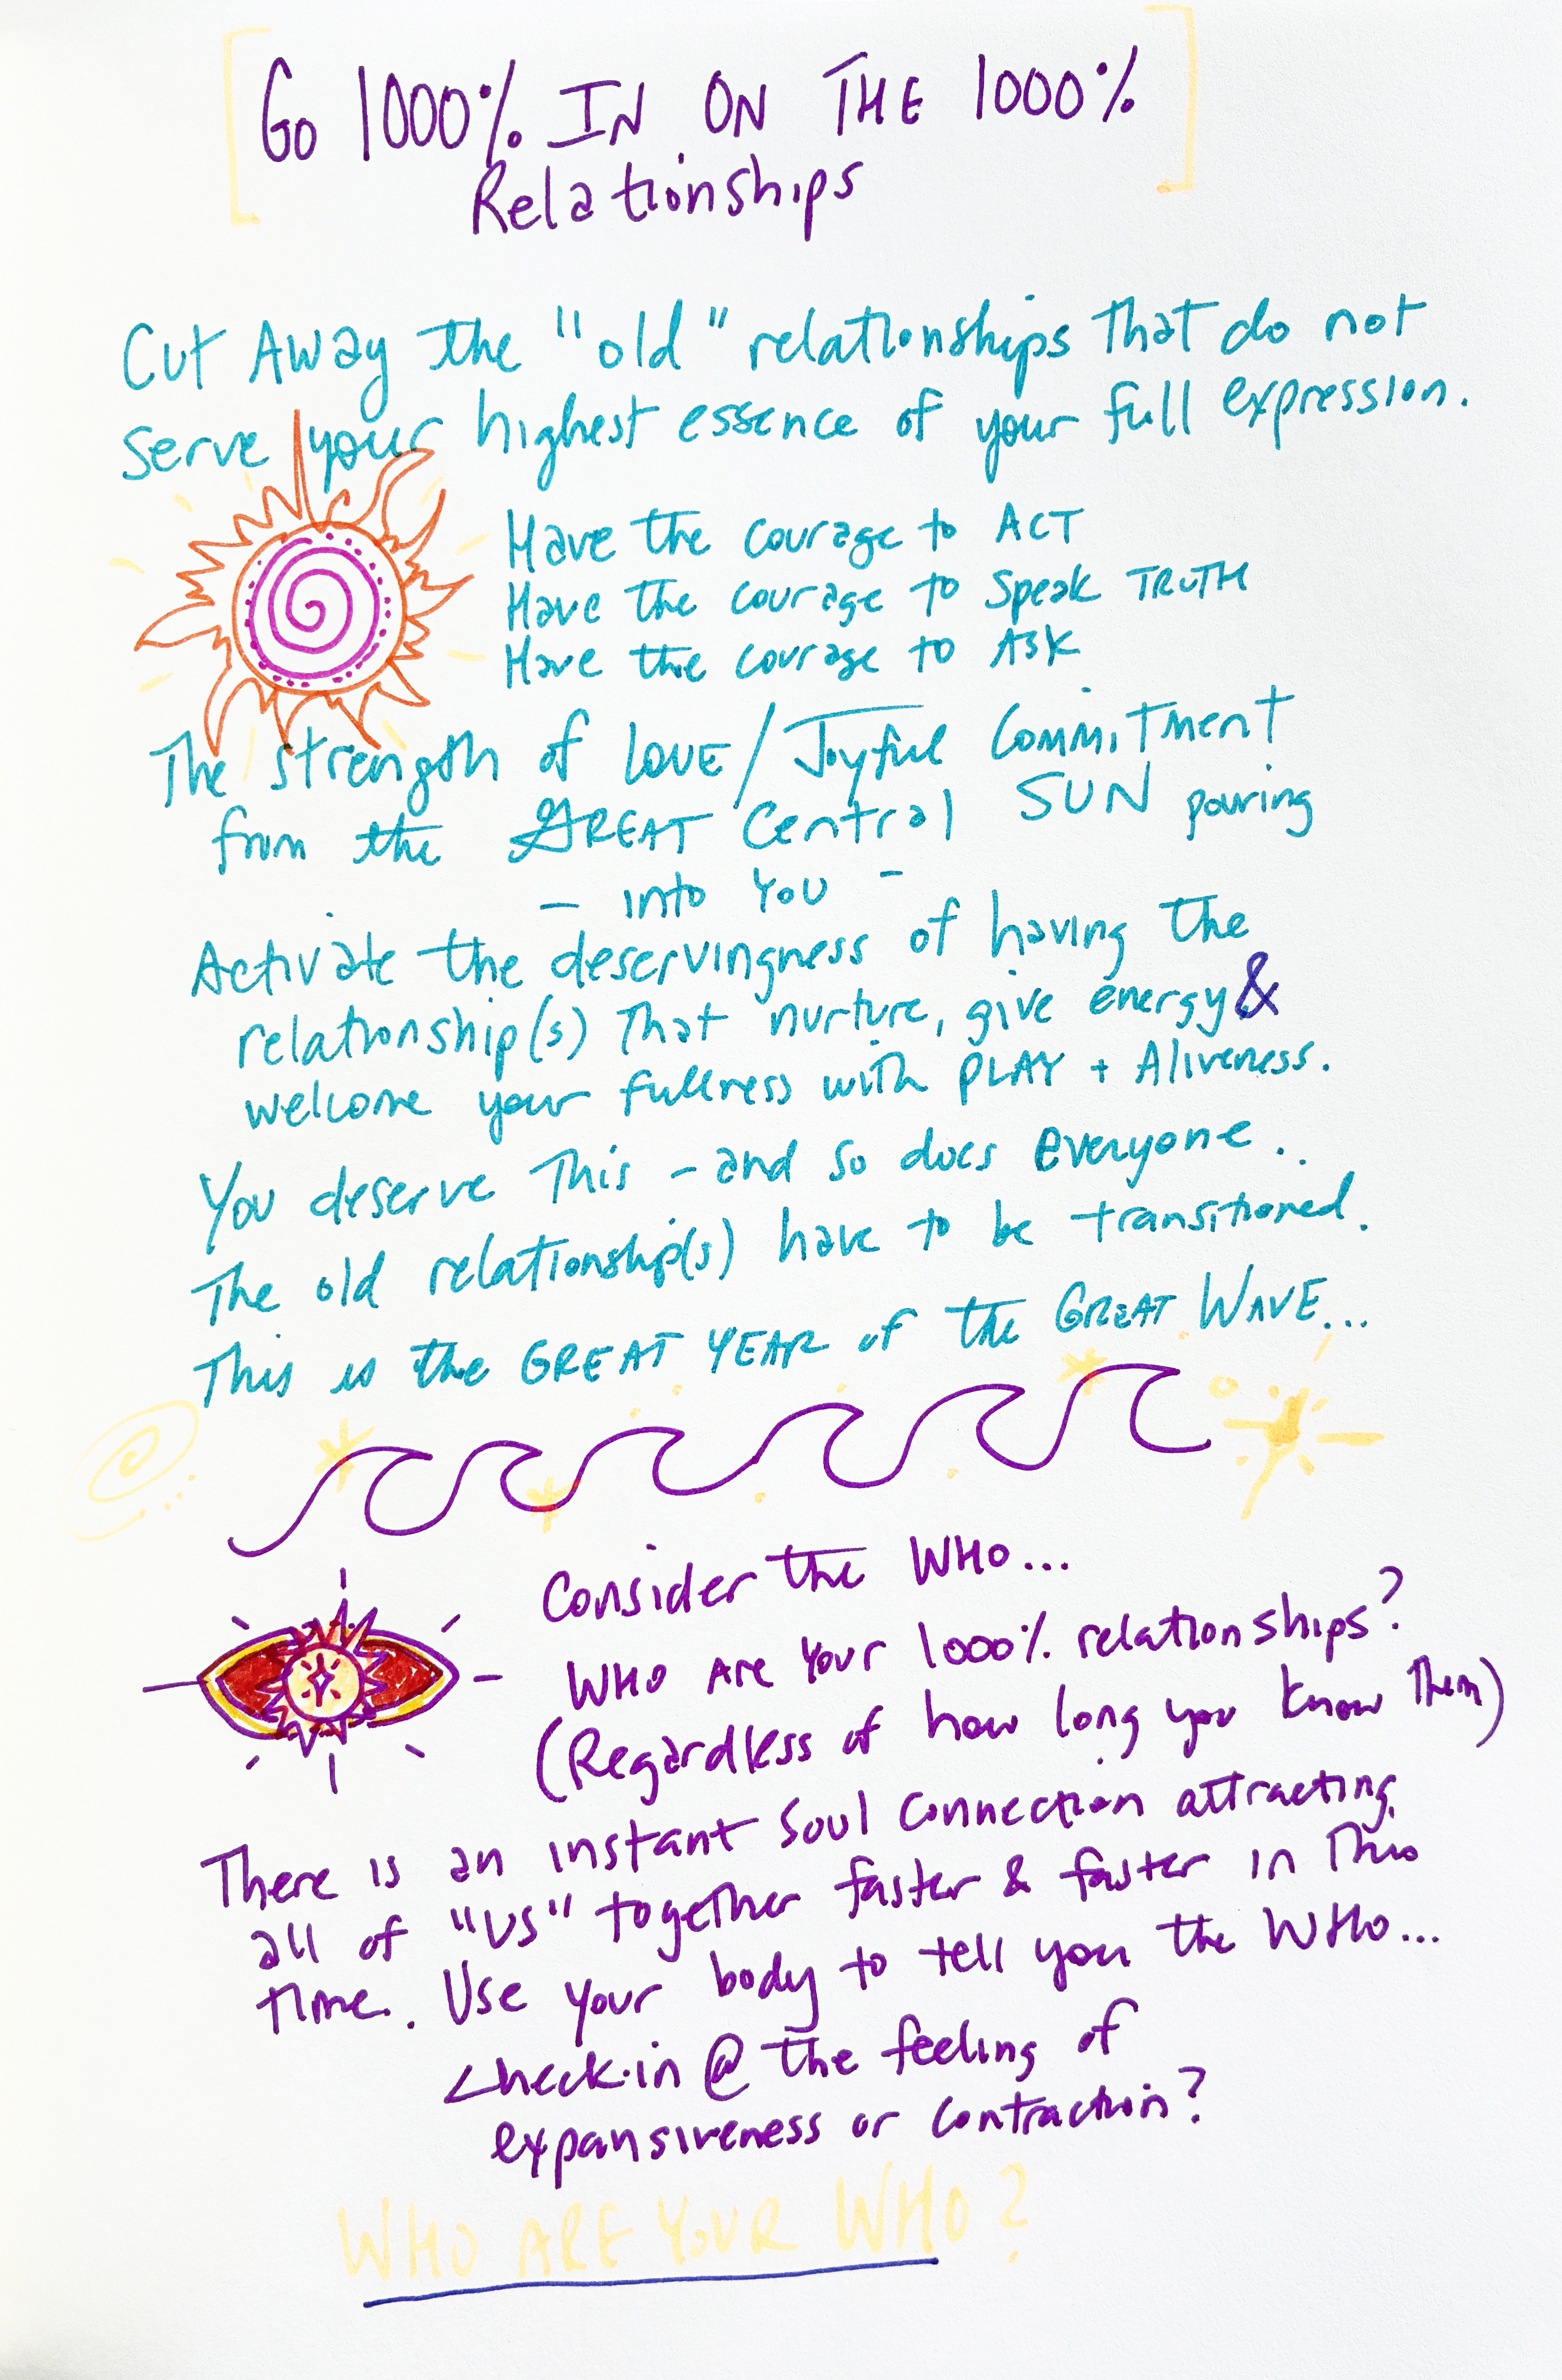 [GO 1000% IN ON THE 1000%
Relationships]
Cut Away the "old" relationships that do not
serve your highest essence of your full expression.
Have the courage to ACT
Have the courage to Speak TRUTH
Have the courage to ASK
The strength of LOVE/Joyful Commitment
from the GREAT Central SUN pouring
- into YOU -
Activate the deservingness of having the
relationship(s) that nurture, give energy &
welcome your fullness with PLAY + Aliveness.
You deserve This - and so does everyone.
The old relationship(s) have to be transitioned.
This is the GREAT YEAR of the GREAT WAVE...
Consider the WHO...
WHO Are Your 1000% relationships?
(Regardless of how long you know Them)
There is an instant Soul Connection attracting
all of "US" together faster & faster in This
time. Use your body to tell you the WHO...
Check-in @ the feeling of
expansiveness or contraction?
WHO ARE YOUR WHO?